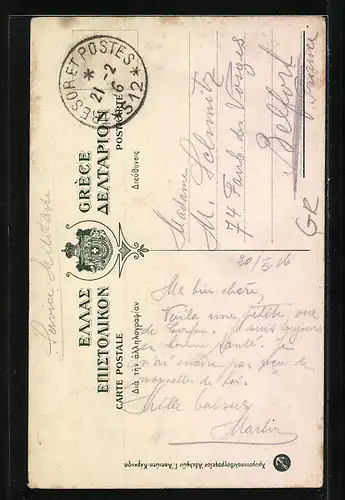 TRESOR ET POSTES
*
21 -2
16
* 512 *
Service Militaire
ΕΛΛΑΣ GRÈCE
ΕΠΙΣΤΟΛΙΚΟΝ ΔΕΛΤΑΡΙΟΝ
CARTE POSTALE POSTCARTE
Διὰ τὴν ἀλληλογραφίαν Διεύθυνσις
Madame
M. Schmitz
74 Faub. des Vosges
Belfort
France
GR
20/II 16
Ma bien chère,
Voilà une petite vue
de Corfou. Je suis toujours
en bonne santé.
n'ai encore pas
nouvelles de toi.
Mille baisers
Martin
Χρωμοτυπολιθογραφεῖον Ἀδελφῶν Γ. Ἀσπιώτη-Κέρκυρα